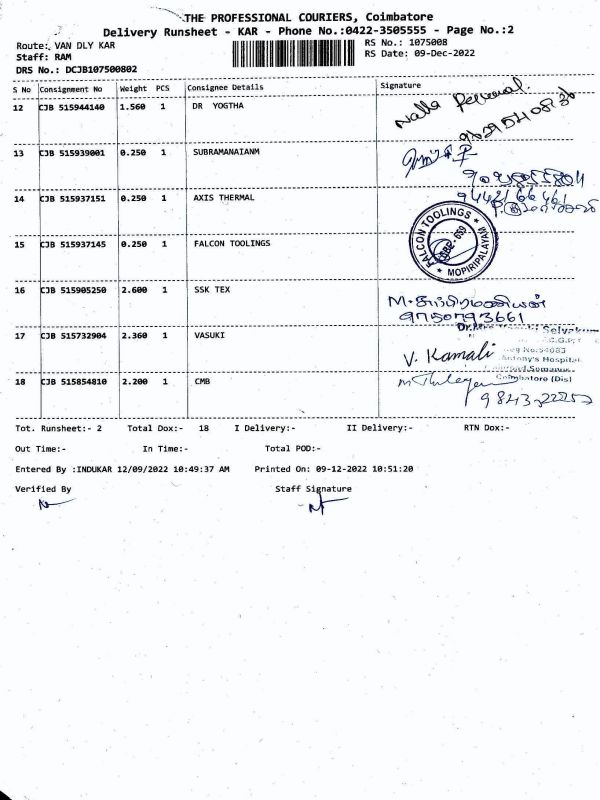 THE PROFESSIONAL COURIERS, Coimbatore
Delivery Runsheet - KAR - Phone No.:0422-3505555 - Page No.:2
Route: VAN DLY KAR
RS No.: 1075008
Staff: RAM
RS Date: 09-Dec-2022
DRS No.: DCJB107500802
S No Consignment No Weight PCS Consignee Details Signature
12 CJB 515944140 1.560 1 DR YOGTHA
13 CJB 515939001 0.250 1 SUBRAMANAIANM
14 CJB 515937151 0.250 1 AXIS THERMAL
15 CJB 515937145 0.250 1 FALCON TOOLINGS
FALCON TOOLINGS
MOPIRIPALAYAM
16 CJB 515905250 2.600 1 SSK TEX
M.சுப்பிரமணியன்
9750793661
17 CJB 515732904 2.360 1 VASUKI
V. Kamali
Antony's Hospital
18 CJB 515854810 2.200 1 CMB
Coimbatore (Dis)
Tot. Runsheet:- 2 Total Dox:- 18 I Delivery:- II Delivery:- RTN Dox:-
Out Time:- In Time:- Total POD:-
Entered By :INDUKAR 12/09/2022 10:49:37 AM Printed On: 09-12-2022 10:51:20
Verified By Staff Signature